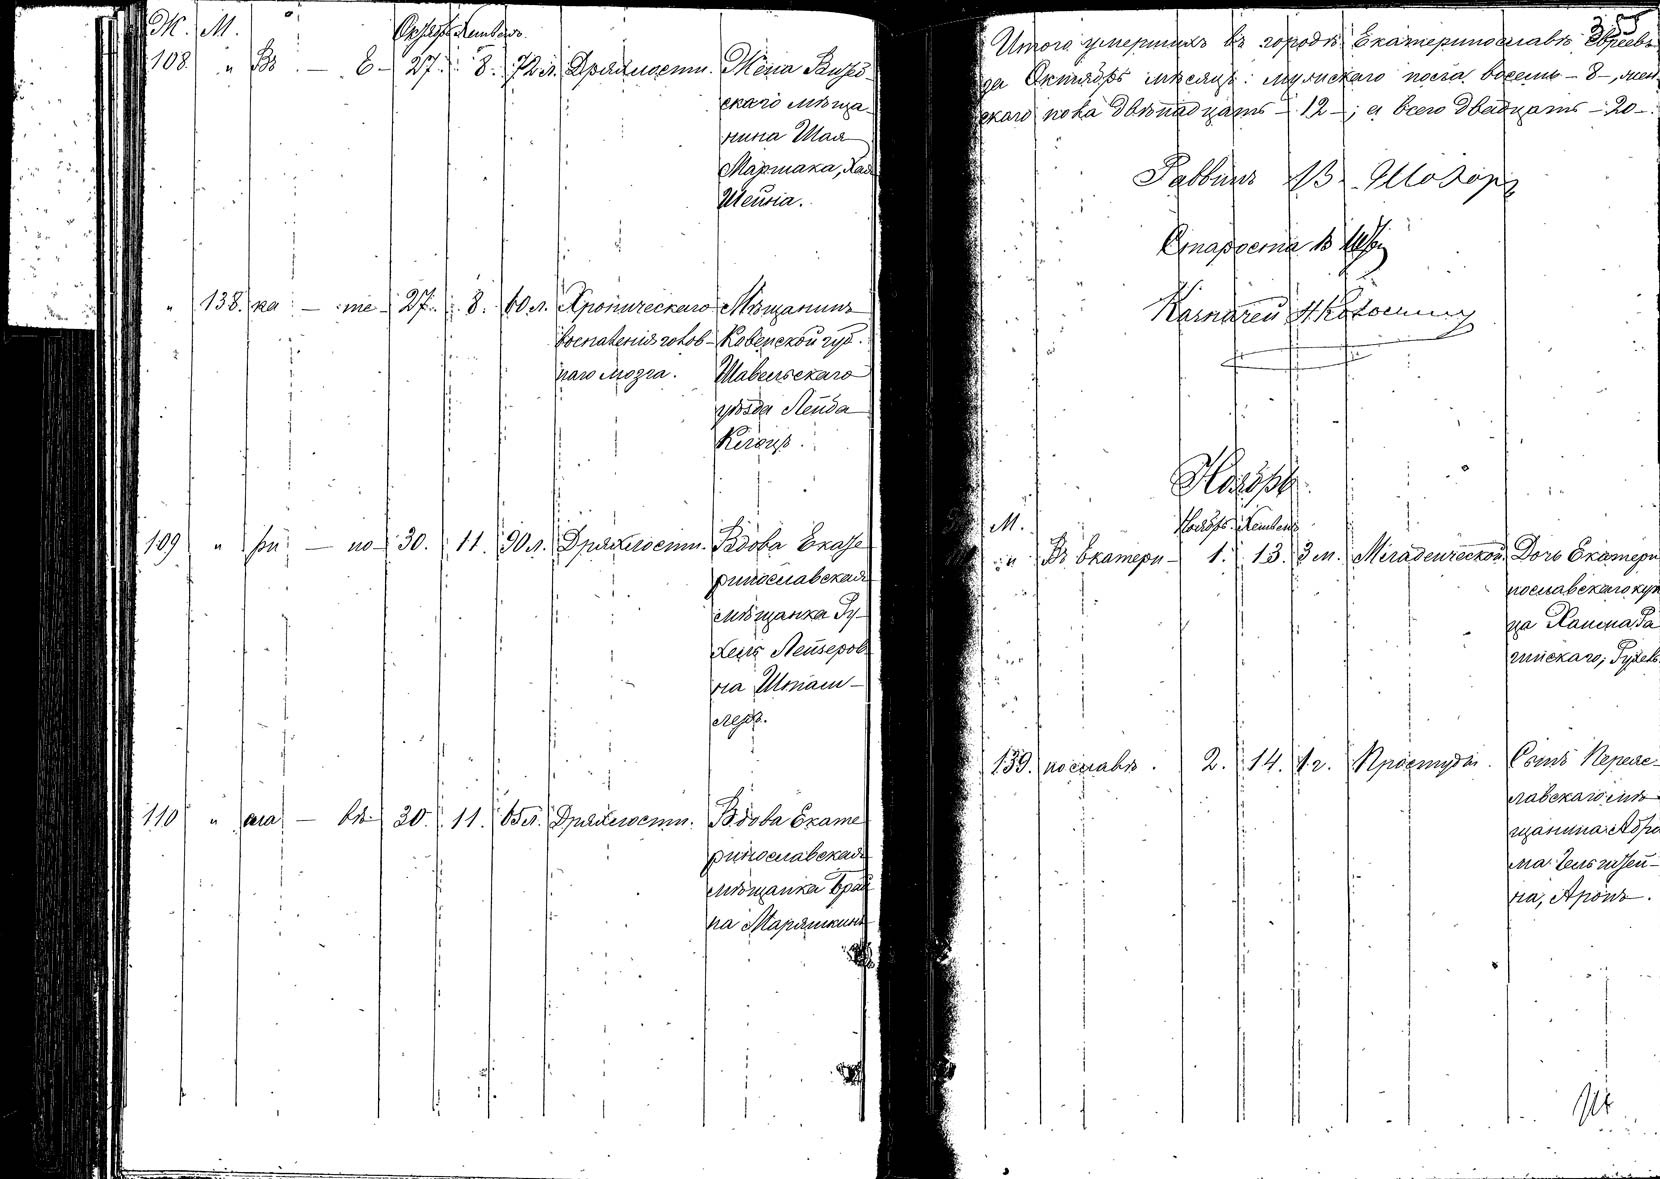 Ж. М. Октябрь Хешвенъ
108 " Въ — Е — 27. 8. 72 л. Дряхлости. Жена Витеб-
скаго мѣща-
нина Шая
Маршака, Хая
Шейна.
" 138. ка — те — 27. 8. 60 л. Хроническаго Мѣщанинъ
воспаленія голов- Ковенской губ.
наго мозга. Шавельскаго
уѣзда Лейба
Клоцъ.
109 " ри — но — 30. 11. 90 л. Дряхлости. Вдова Екате
ринославская
мѣщанка Ру-
хель Лейзеров
на Штам-
леръ.
110 " сла — вѣ. 30. 11. 65 л. Дряхлости. Вдова Екате
ринославская
мѣщанка Брай
на Маряшкинъ
35
Итого умершихъ въ городѣ Екатеринославѣ евреевъ
за Октябрь мѣсяцъ: мужскаго пола восемь – 8 –, жен
скаго пола двѣнадцать – 12 –; а всего двадцать – 20 –.
Раввинъ В. Шохоръ
Староста В
Казначей Н
Ноябрь
М. Ноябрь. Хешвенъ
" Въ Екатери – 1. 13. 3 м. Младенческой. Дочь Екатери
нославскаго куп
ца Хаима Ра
гинскаго, Рухель
139. нославѣ. 2. 14. 1 г. Простуды. Сынъ Переяс-
лавскаго мѣ-
щанина Абра
ма Гельштей-
на, Аронъ.